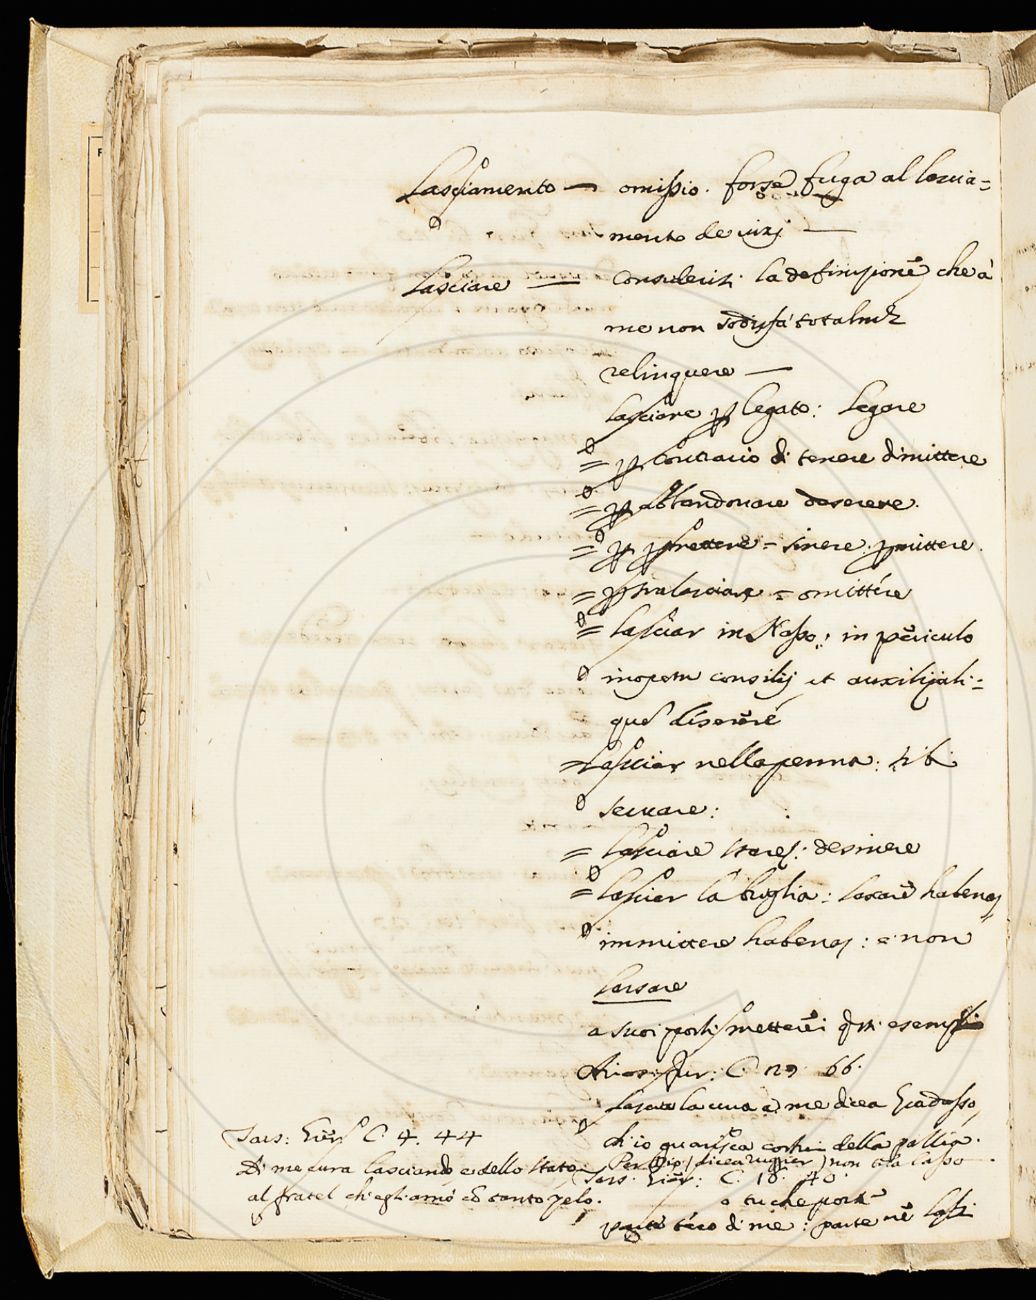 Lasciamento — omissio. forse fuga al lascia=
mento de vizj —
Lasciare — la definizione che à
me non sodisfà totalm.te
relinquere —
lasciare p legato: legare
= p contrario di tenere dimittere
= p abbandonare deserere.
= p permettere = sinere. permittere.
= p tralasciare = omittere
= lasciar in Nasso: in periculo
inopem consilij et auxilij ali=
quem deserere
= lasciar nella penna: sibi
servare:
= lasciare stare: desinere
= lasciar la briglia: laxare habenas
immittere habenas: e non
lassare
a suoi posti metterei q.sti esempli
Arios. fur: C. 27. 66.
Lascia la cura a me dicea Gradasso
ch'io guarisca costui della pazzia.
Per Dio (dicea Ruggier) non te la lasso
Tass: Gier: C. 4. 44
A me cura lasciando e dello stato
al fratel ch'egli amò con tanto zelo.
Tass. Gier: C. 16. 40.
o tu che porte
parte teco di me: parte ne lassi